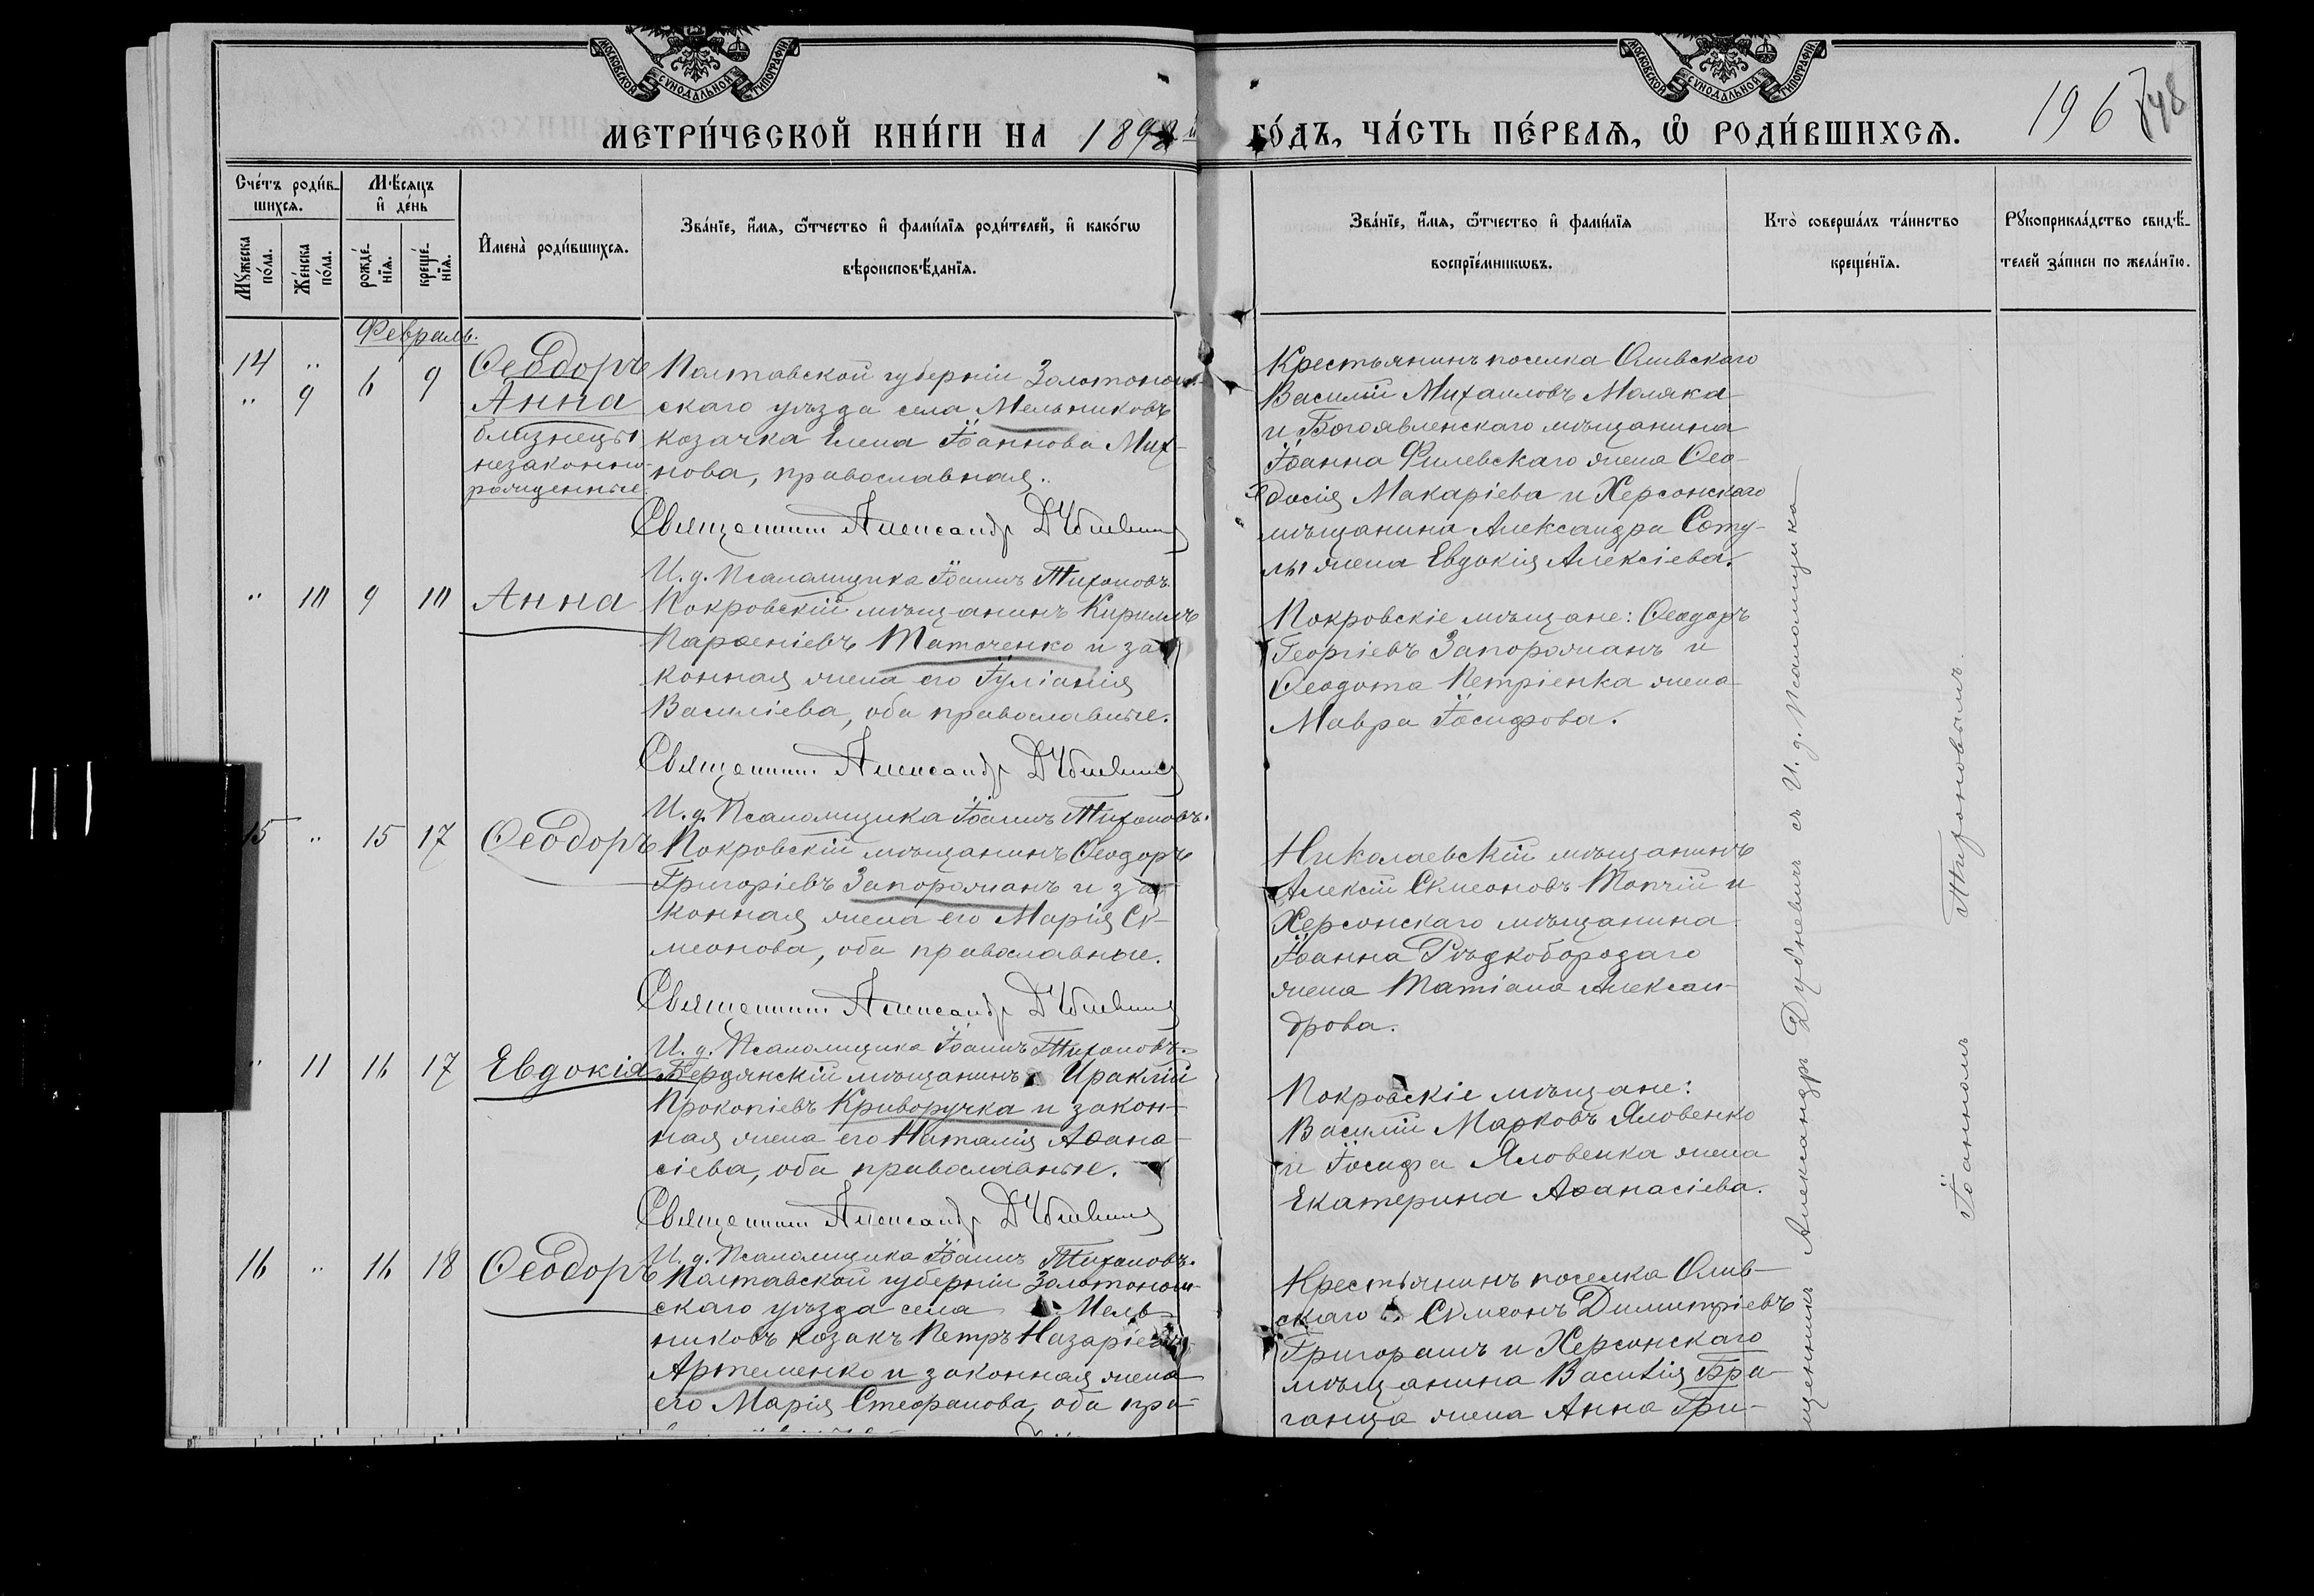 МОСКОВСКОЙ СѴНОДАЛЬНОЙ ТИПОГРАФІИ
МОСКОВСКОЙ СѴНОДАЛЬНОЙ ТИПОГРАФІИ
МЕТРИ́ЧЕСКОЙ КНИ́ГИ НА 1898 й ГО́ДЪ, ЧА́СТЬ ПЕ́РВАѦ, Ѡ҆ РОДИ́ВШИХСѦ.
196
748
Сче́тъ роди́в-
шихсѧ.
Мꙋ́жеска по́ла.
Же́нска по́ла.
Мѣ́сѧцъ
и҆ де́нь
рожде́-
нїѧ.
креще́-
нїѧ.
И҆мена̀ роди́вшихсѧ.
Зва́нїе, и҆́мѧ, ѻ҆́тчество и҆ фами́лїѧ роди́телей, и҆ како́гѡ
вѣроисповѣ́данїѧ.
Зва́нїе, и҆́мѧ, ѻ҆́тчество и҆ фами́лїѧ
воспрїе́мникѡвъ.
Кто̀ соверша́лъ та́инство
креще́нїѧ.
Рꙋкоприкла́дство свидѣ́-
телей за́писи по жела́нїю.
Февраль.
14 „
„ 9 6 9
Ѳеодоръ
Анна
близнецы
незаконно-
рожденные.
Полтавской губерніи Золотонош-
скаго уѣзда села Мельниковъ
козачка Елена Іоаннова Мих-
нова, православная.
Священникъ Александр Дубневичъ
И. д. Псаломщика Іоаннъ Тихоновъ.
Крестьянинъ поселка Оливскаго
Василій Михаиловъ Моляка
и Богоявленскаго мѣщанина
Іоанна Филевскаго жена Ѳео-
досія Макаріева и Херсонскаго
мѣщанина Александра Соту-
лы жена Евдокія Алексіева.
„ 10 9 10 Анна
Покровскій мѣщанинъ Кириллъ
Парѳеніевъ Таточенко и за-
конная жена его Іуліанія
Василіева, оба православные.
Священникъ Александр Дубневичъ
И. д. Псаломщика Іоаннъ Тихоновъ.
Покровскіе мѣщане: Ѳеодоръ
Георгіевъ Запорожанъ и
Ѳеодота Петріенка жена
Мавра Іосифова.
15 „ 15 17 Ѳеодоръ
Покровскій мѣщанинъ Ѳеодоръ
Григоріевъ Запорожанъ и за-
конная жена его Марія Сѵ-
меонова, оба православные.
Священникъ Александр Дубневичъ
И. д. Псаломщика Іоаннъ Тихоновъ.
Николаевскій мѣщанинъ
Алексій Сѵмеоновъ Топчій и
Херсонскаго мѣщанина
Іоанна Рѣдкобородаго
жена Татіана Алексан-
дрова.
„ 11 16 17 Евдокія
Бердянскій мѣщанинъ Ираклій
Прокопіевъ Криворучка и закон-
ная жена его Наталія Аѳана-
сіева, оба православные.
Священникъ Александр Дубневичъ
И. д. Псаломщика Іоаннъ Тихоновъ.
Покровскіе мѣщане:
Василій Марковъ Яловенко
и Іосифа Яловенка жена
Екатерина Аѳанасіева.
16 „ 16 18 Ѳеодоръ
Полтавской губерніи Золотонош-
скаго уѣзда села Мель-
никовъ козакъ Петръ Назаріевъ
Артеменко и законная жена
его Марія Стефанова, оба пра-
Крестьянинъ поселка Олив-
скаго Сѵмеонъ Димитріевъ
Григорашъ и Херсонскаго
мѣщанина Василія Бра-
ганца жена Анна Гри-
Александръ Дубневичъ съ И. д. Псаломщика
Іоанномъ Тихоновымъ.